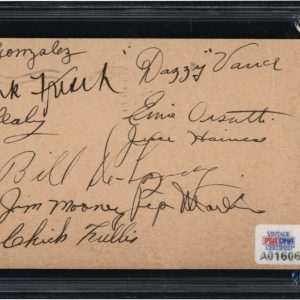 Gonzalez
"Dazzy" Vance
nk Frisch
ealy
Ernie Orsatti
Jesse Haines
Bill DeLancey
Jim Mooney Pep Martin
Chick Fullis
VINTAGE
PSA/DNA
CERTIFIED
A01606